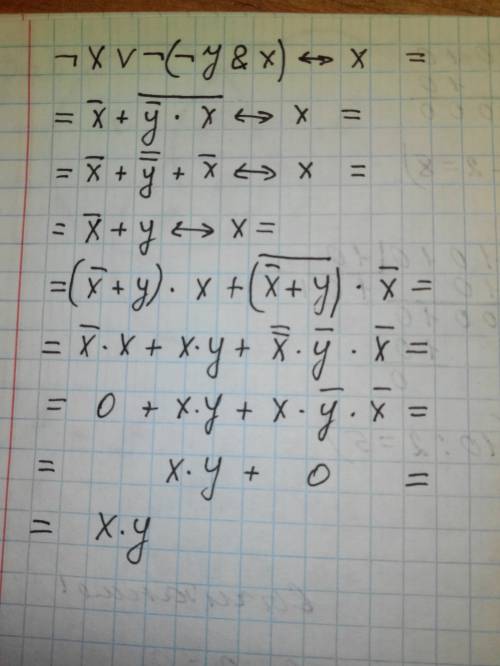 ¬ X ∨ ¬(¬y & x) ↔ x =
= x̅ + \overline{y̅ · x} ↔ x =
= x̅ + y̿ + x̅ ↔ x =
= x̅ + y ↔ x =
= (x̅ + y) · x + (\overline{x̅ + y}) · x̅ =
= x̅ · x + x · y + x̿ · y̅ · x̅ =
= 0 + x · y + x · y̅ · x̅ =
= x · y + 0 =
= x · y